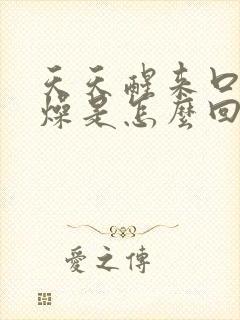 天天醒来口
燥是怎麼回
愛之傳